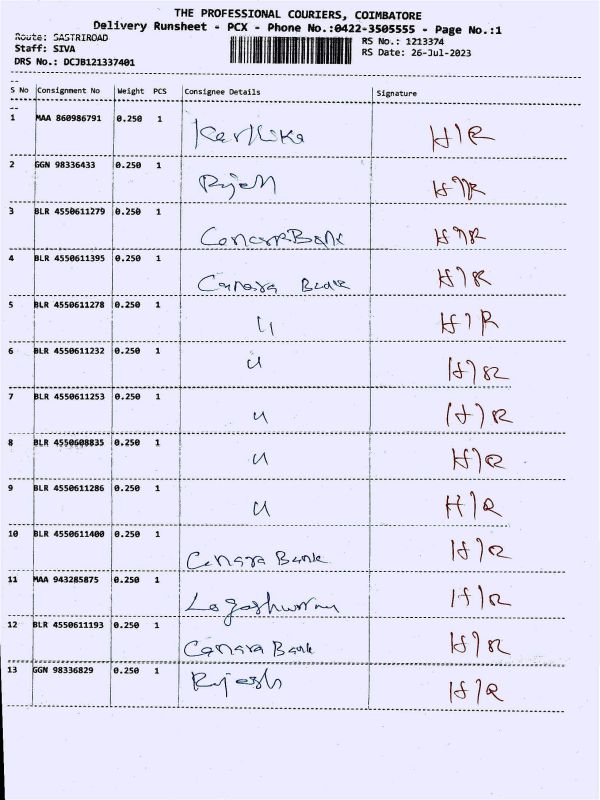 THE PROFESSIONAL COURIERS, COIMBATORE
Delivery Runsheet - PCX - Phone No.:0422-3505555 - Page No.:1
Route: SASTRIROAD
RS No.: 1213374
Staff: SIVA
RS Date: 26-Jul-2023
DRS No.: DCJB121337401
S No Consignment No Weight PCS Consignee Details Signature
1 MAA 860986791 0.250 1 Karthika H/R
2 GGN 98336433 0.250 1 H/R
3 BLR 4550611279 0.250 1 Canara Bank H/R
4 BLR 4550611395 0.250 1 Canara Bank H/R
5 BLR 4550611278 0.250 1 H/R
6 BLR 4550611232 0.250 1 H/R
7 BLR 4550611253 0.250 1 H/R
8 BLR 4550608835 0.250 1 H/R
9 BLR 4550611286 0.250 1 H/R
10 BLR 4550611400 0.250 1 Canara Bank H/R
11 MAA 943285875 0.250 1 H/R
12 BLR 4550611193 0.250 1 Canara Bank H/R
13 GGN 98336829 0.250 1 Rajesh H/R